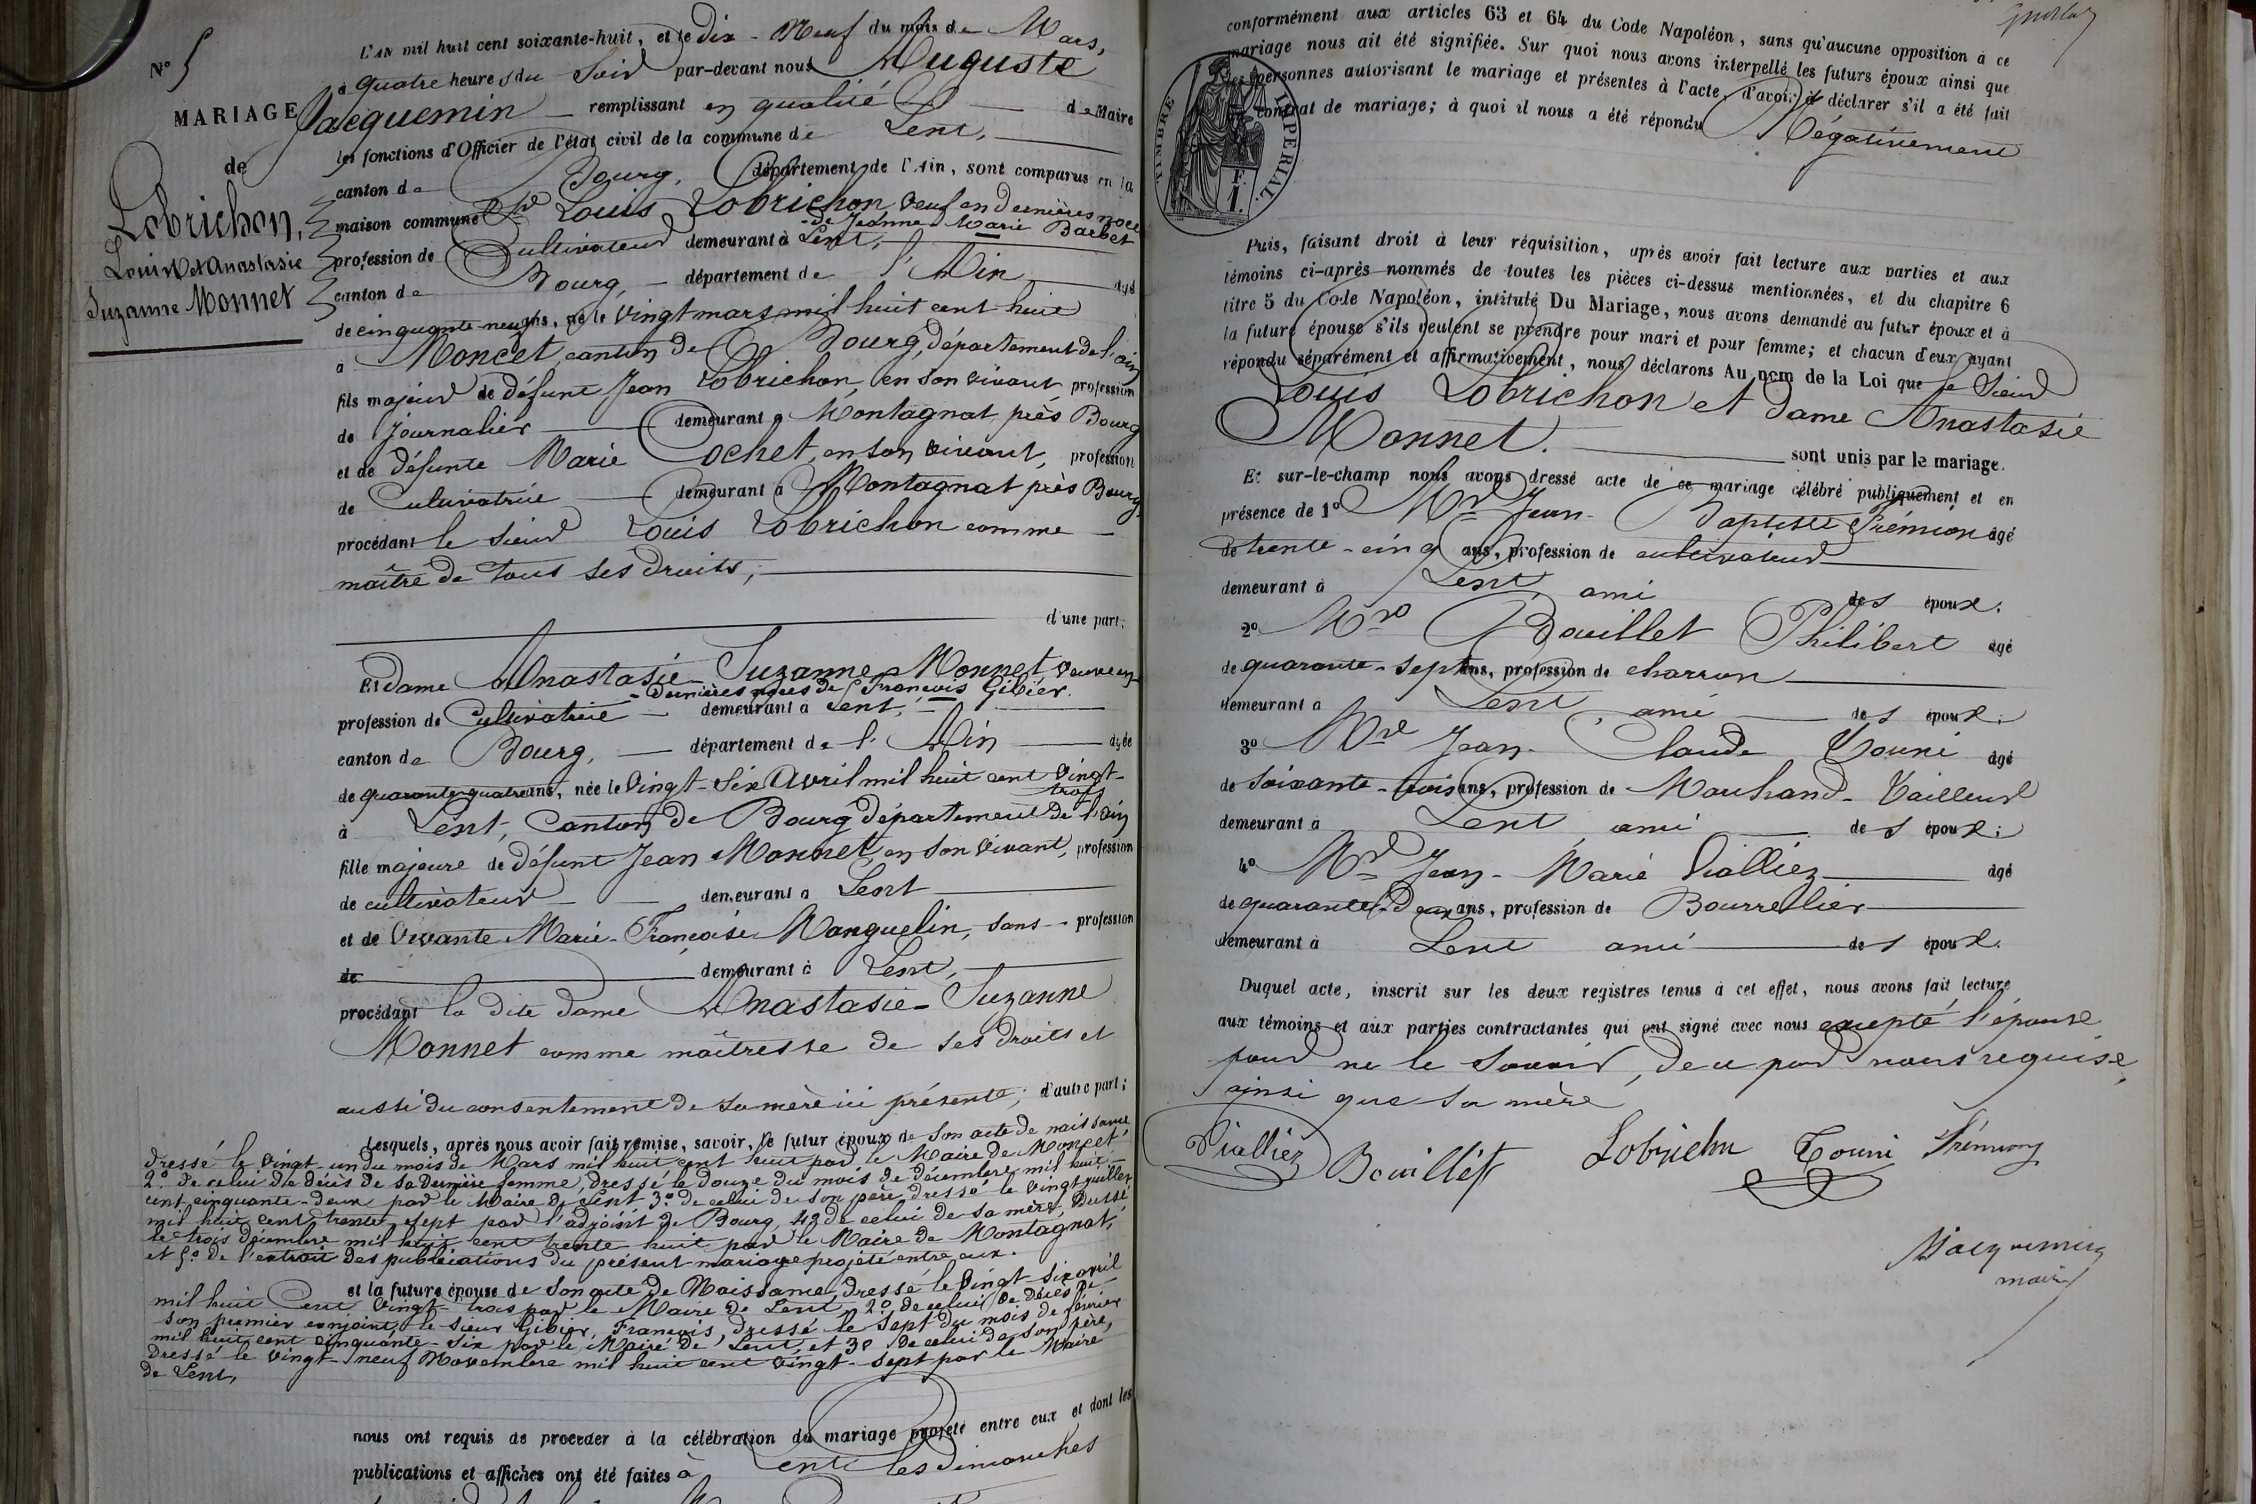 N° 5
MARIAGE
de
Lobrichon,
Louis et Anastasie
Suzanne Monnet
L'AN mil huit cent soixante-huit, et le Dix-Neuf du mois de Mars,
à quatre heures du Soir par-devant nous Auguste
Jacquemin remplissant en qualité de Maire
les fonctions d'Officier de l'état civil de la commune de Lent,
canton de Bourg, département de l'Ain, sont comparus en la
maison commune Sr Louis Lobrichon veuf en dernières noces
de Jeanne Marie Barbet
profession de Cultivateur demeurant à Lent,
canton de Bourg, département de l'Ain âgé
de cinquante-neuf ans, né le vingt mars mil huit cent huit
à Moncet canton de Bourg, département de l'ain
fils majeur de défunt Jean Lobrichon, en son vivant, profession
de journalier demeurant à Montagnat près Bourg
et de défunte Marie Cochet, en son vivant, profession
de Cultivatrice demeurant à Montagnat près Bourg,
procédant le sieur Louis Lobrichon comme
maître de tous ses droits;
d'une part;
Et dame Anastasie Suzanne Monnet veuve en
dernières noces de François Gibier.
profession de Cultivatrice demeurant à Lent,
canton de Bourg, département de l'Ain âgée
de quarante-quatre ans, née le Vingt-Six Avril mil huit cent Vingt-
trois
à Lent, Canton de Bourg département de l'ain
fille majeure de défunt Jean Monnet, en son vivant, profession
de cultivateur demeurant à Lent
et de Vivante Marie-Françoise Manguelin, sans profession
de demeurant à Lent,
procédant la dite dame Anastasie-Suzanne
Monnet comme maîtresse de ses droits et
aussi du consentement de sa mère ici présente; d'autre part;
Lesquels, après nous avoir fait remise, savoir, le futur époux de son acte de naissance
dressé le vingt-un du mois de Mars mil huit cent huit par le Maire de Moncet
2° de celui de décès de sa dernière femme, dressé le douze du mois de décembre mil huit
cent cinquante-deux par le Maire de Lent 3° de celui de son père, dressé le vingt juillet
mil huit cent trente sept par l'adjoint de Bourg, 4° de celui de sa mère, dressé
le trois décembre mil huit cent trente huit par le Maire de Montagnat,
et 5° de l'extrait des publications du présent mariage projeté entre eux.
et la future épouse de son acte de Naissance, dressé le Vingt-six avril
mil huit Cent Vingt-trois par le Maire de Lent, 2° de celui de décès de
son premier conjoint, le sieur Gibier, François, dressé le Sept du mois de février
mil huit cent cinquante-six par le Maire de Lent, et 3° de celui de son père,
dressé le vingt-neuf Novembre mil huit cent vingt-sept par le Maire
de Lent,
nous ont requis de procéder à la célébration du mariage projeté entre eux et dont les
publications et affiches ont été faites à Lent les dimanches
conformément aux articles 63 et 64 du Code Napoléon, sans qu'aucune opposition à ce
mariage nous ait été signifiée. Sur quoi nous avons interpellé les futurs époux ainsi que
les personnes autorisant le mariage et présentes à l'acte, d'avoir à déclarer s'il a été fait
contrat de mariage; à quoi il nous a été répondu Négativement
TIMBRE IMPERIAL.
F.
1.
Puis, faisant droit à leur réquisition, après avoir fait lecture aux parties et aux
témoins ci-après nommés de toutes les pièces ci-dessus mentionnées, et du chapitre 6
titre 5 du Code Napoléon, intitulé Du Mariage, nous avons demandé au futur époux et à
la future épouse s'ils veulent se prendre pour mari et pour femme; et chacun d'eux ayant
répondu séparément et affirmativement, nous déclarons Au nom de la Loi que le Sieur
Louis Lobrichon et dame Anastasie
Monnet. sont unis par le mariage.
Et sur-le-champ nous avons dressé acte de ce mariage célébré publiquement et en
présence de 1° Mr Jean-Baptiste Frémion âgé
de trente-cinq ans, profession de cultivateur
demeurant à Lent, ami des époux.
2° Mr Bouillet Philibert âgé
de quarante-sept ans, profession de charron
demeurant à Lent, ami des époux.
3° Mr Jean-Claude Touni âgé
de soixante-trois ans, profession de Marchand-Tailleur
demeurant à Lent, ami des époux;
4° Mr Jean-Marie Vialliez âgé
de quarante-deux ans, profession de Bourrellier
demeurant à Lent ami des époux.
Duquel acte, inscrit sur les deux registres tenus à cet effet, nous avons fait lecture
aux témoins et aux parties contractantes qui ont signé avec nous excepté l'épouse
pour ne le savoir, de ce par nous requise,
ainsi que sa mère
Vialliez Bouillet Lobrichn Touni Frémion
Ajacquemin
maire